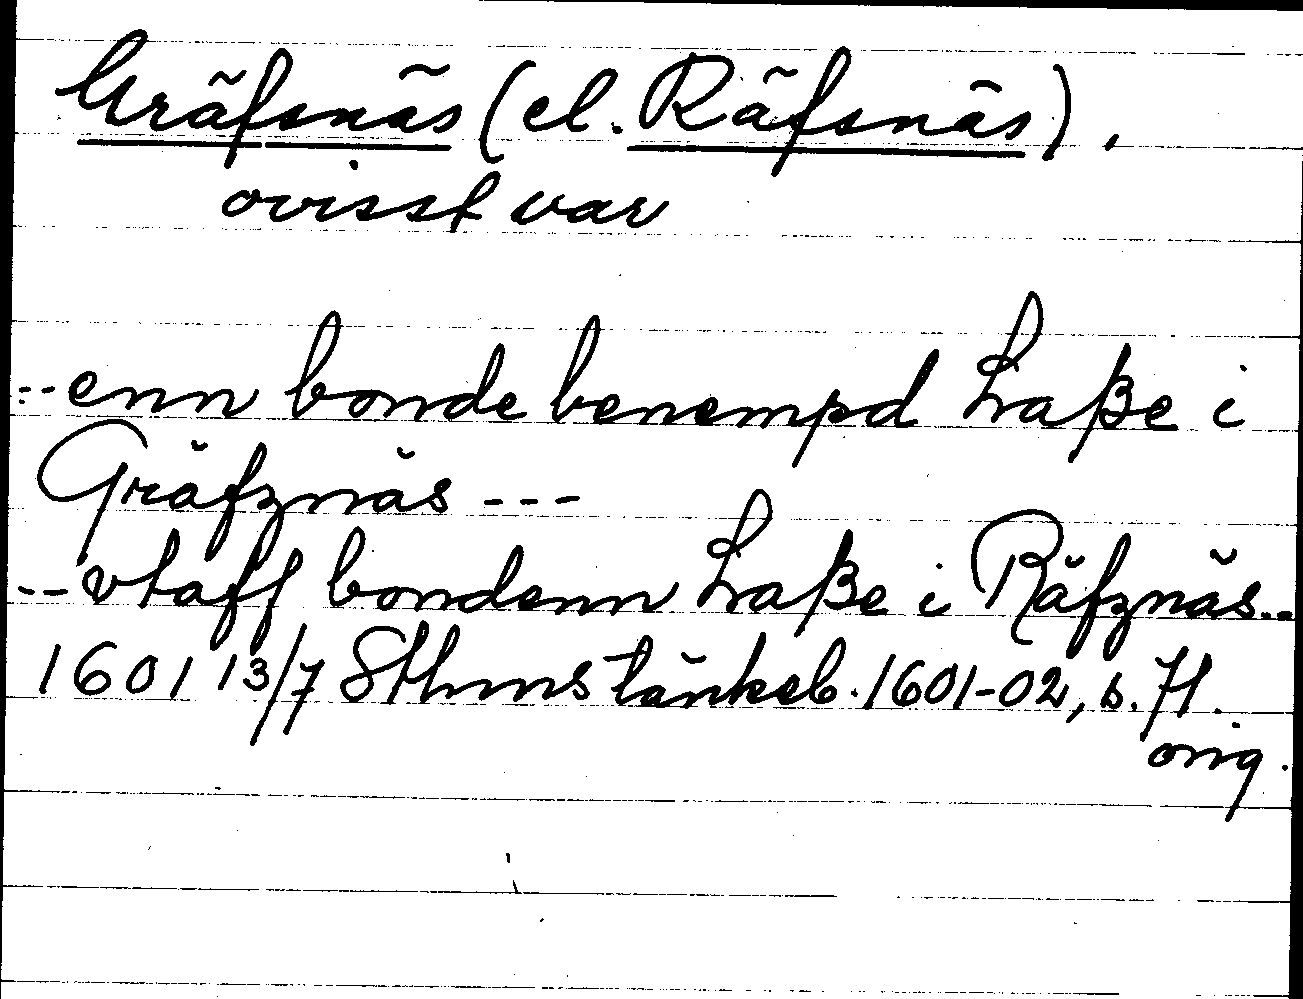 Gräfsnäs (el. Räfsnäs),
ovisst var
--enn bonde benempd Laße i
Gräfznäs ---
--vtaff bondenn Laße i Räfznäs--
1601 13/7 Sthms tänkeb. 1601-02, s. 71.
orig.